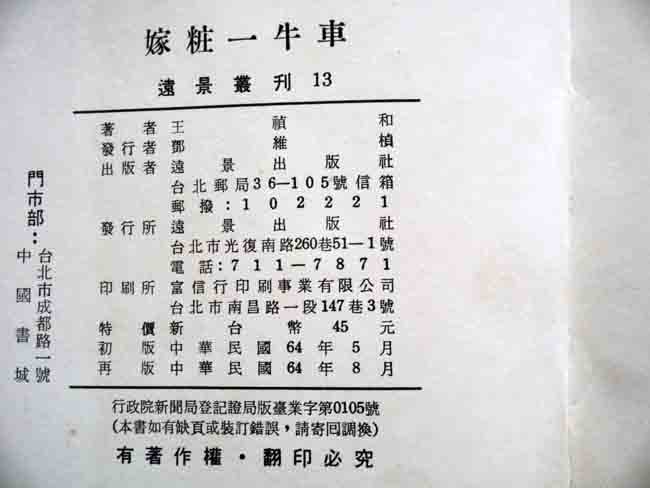 嫁粧一牛車
遠景叢刊 13
著者 王禎和
發行者 鄧維楨
出版者 遠景出版社
台北郵局36—105號信箱
郵撥：102221
發行所 遠景出版社
台北市光復南路260巷51—1號
電話：711—7871
印刷所 富信行印刷事業有限公司
台北市南昌路一段147巷3號
特價 新台幣45元
初版 中華民國64年5月
再版 中華民國64年8月
行政院新聞局登記證局版臺業字第0105號
(本書如有缺頁或裝訂錯誤，請寄回調換)
有著作權・翻印必究
門市部：
台北市成都路一號
中國書城